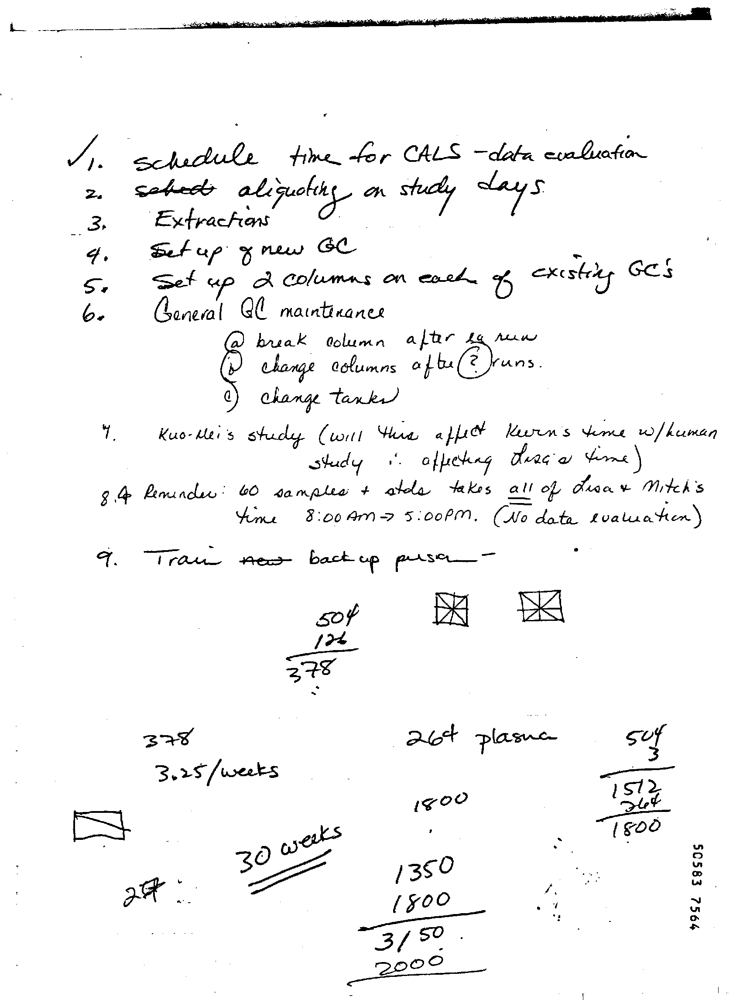 ✓1. schedule time for CALS - data evaluation
2. sched aliquoting on study days.
3. Extractions
4. Set up of new GC
5. Set up 2 columns on each of existing GC's
6. General GC maintenance
(a) break column after ea run
(b) change columns after (?) runs.
c) change tanks
7. Kuo-Mei's study (will this affect Kevin's time w/human
study ∴ affecting Lisa's time)
8. Reminder: 60 samples + stds takes all of Lisa & Mitch's
time 8:00 AM → 5:00 PM. (No data evaluation)
9. Train new back up person –
504
126
378
378
3.25/weeks
264 plasma
504
3
1512
264
1800
1800
30 weeks
27
1350
1800
3150
2000
50583 7564